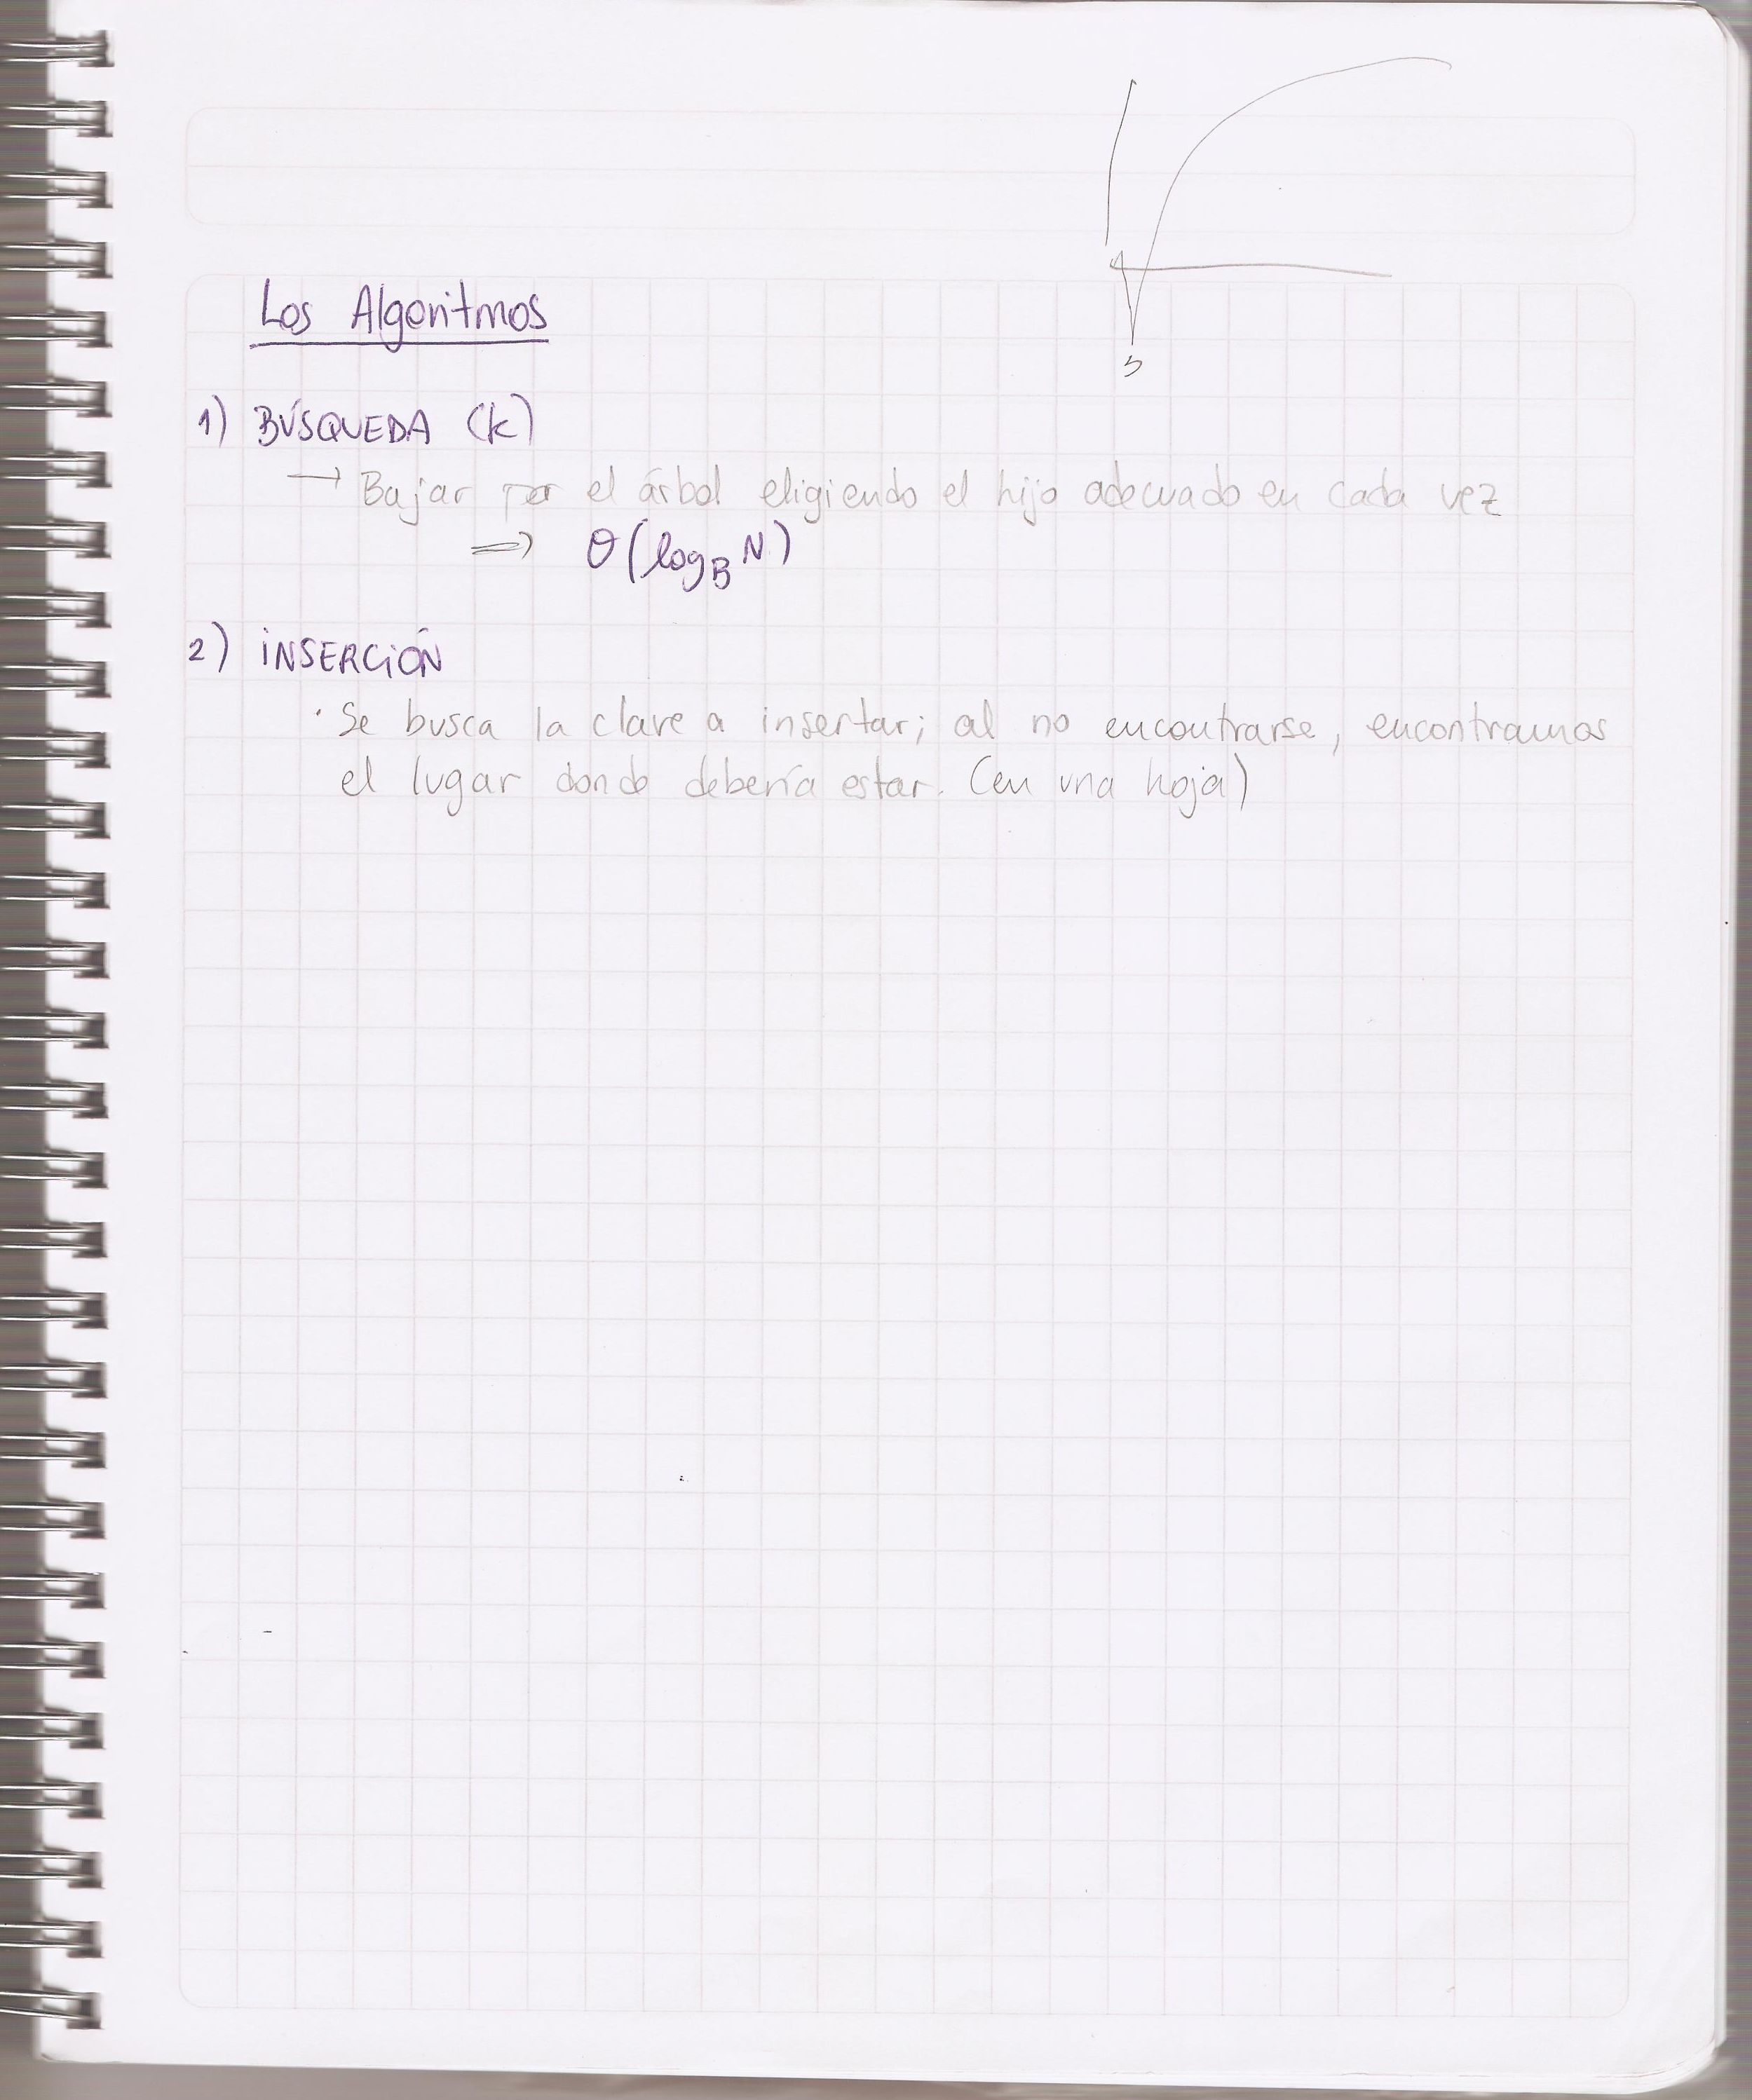 5
Los Algoritmos
1) BÚSQUEDA (k)
→ Bajar por el árbol eligiendo el hijo adecuado en cada vez
⇒ O(log_B N)
2) INSERCIÓN
· Se busca la clave a insertar; al no encontrarse, encontramos
el lugar donde debería estar. (en una hoja)